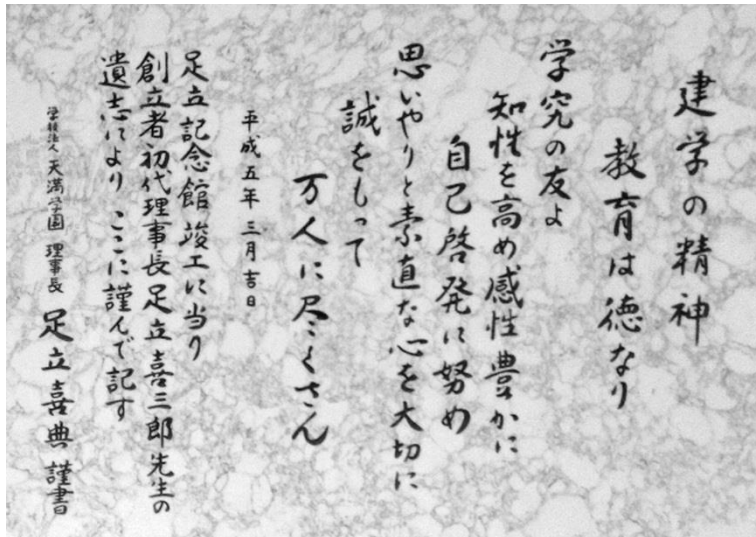 建学の精神
教育は徳なり
学究の友よ
知性を高め感性豊かに
自己啓発に努め
思いやりと素直な心を大切に
誠をもって
万人に尽くさん
平成五年 三月吉日
足立記念館竣工に当り
創立者初代理事長足立喜三郎先生の
遺志により ここに謹んで記す
学校法人 天満学園 理事長 足立喜典 謹書